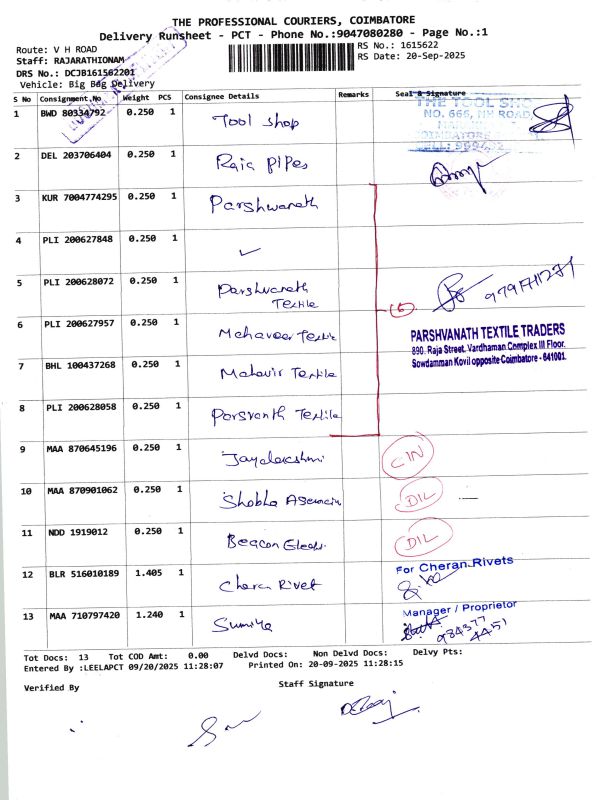 THE PROFESSIONAL COURIERS, COIMBATORE
Delivery Runsheet - PCT - Phone No.:9047080280 - Page No.:1
Route: V H ROAD
RS No.: 1615622
Staff: RAJARATHIONAM
RS Date: 20-Sep-2025
DRS No.: DCJB161562201
Vehicle: Big Bag Delivery
S No Consignment No Weight PCS Consignee Details Remarks Seal & Signature
1 BWD 80334792 0.250 1 Tool shop
THE TOOL SHO
NO. 666, NH ROAD
2 DEL 203706404 0.250 1 Raja PIPes
3 KUR 7004774295 0.250 1 Parshwanath
4 PLI 200627848 0.250 1 ✓
5 PLI 200628072 0.250 1 Parshvanath Textile
(6) 9791711271
6 PLI 200627957 0.250 1 Mahaveer Textile
PARSHVANATH TEXTILE TRADERS
890. Raja Street, Vardhaman Complex III Floor.
Sowdamman Kovil opposite Coimbatore - 641001.
7 BHL 100437268 0.250 1 Mahavir Textile
8 PLI 200628058 0.250 1 Parsvanth Textile
9 MAA 870645196 0.250 1 Jayalakshmi CIN
10 MAA 870901062 0.250 1 Shobha DIL
11 NDD 1919012 0.250 1 Beacon DIL
12 BLR 516010189 1.405 1 Cheran Rivet
For Cheran Rivets
Manager / Proprietor
13 MAA 710797420 1.240 1 Sumiya
984377
4451
Tot Docs: 13 Tot COD Amt: 0.00 Delvd Docs: Non Delvd Docs: Delvy Pts:
Entered By :LEELAPCT 09/20/2025 11:28:07 Printed On: 20-09-2025 11:28:15
Verified By Staff Signature